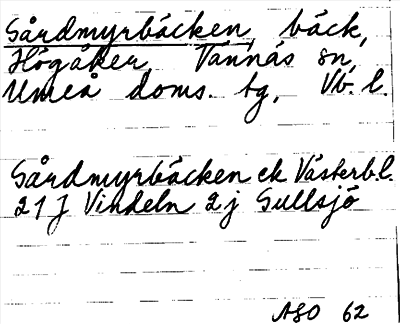 Sårdmyrbäcken, bäck,
Högåker, Tännäs sn,
Umeå doms. tg, Vb. l.
Sårdmyrbäcken ek Västerb.l.
21 J Vindeln 2 j Gullsjö
ASO 62